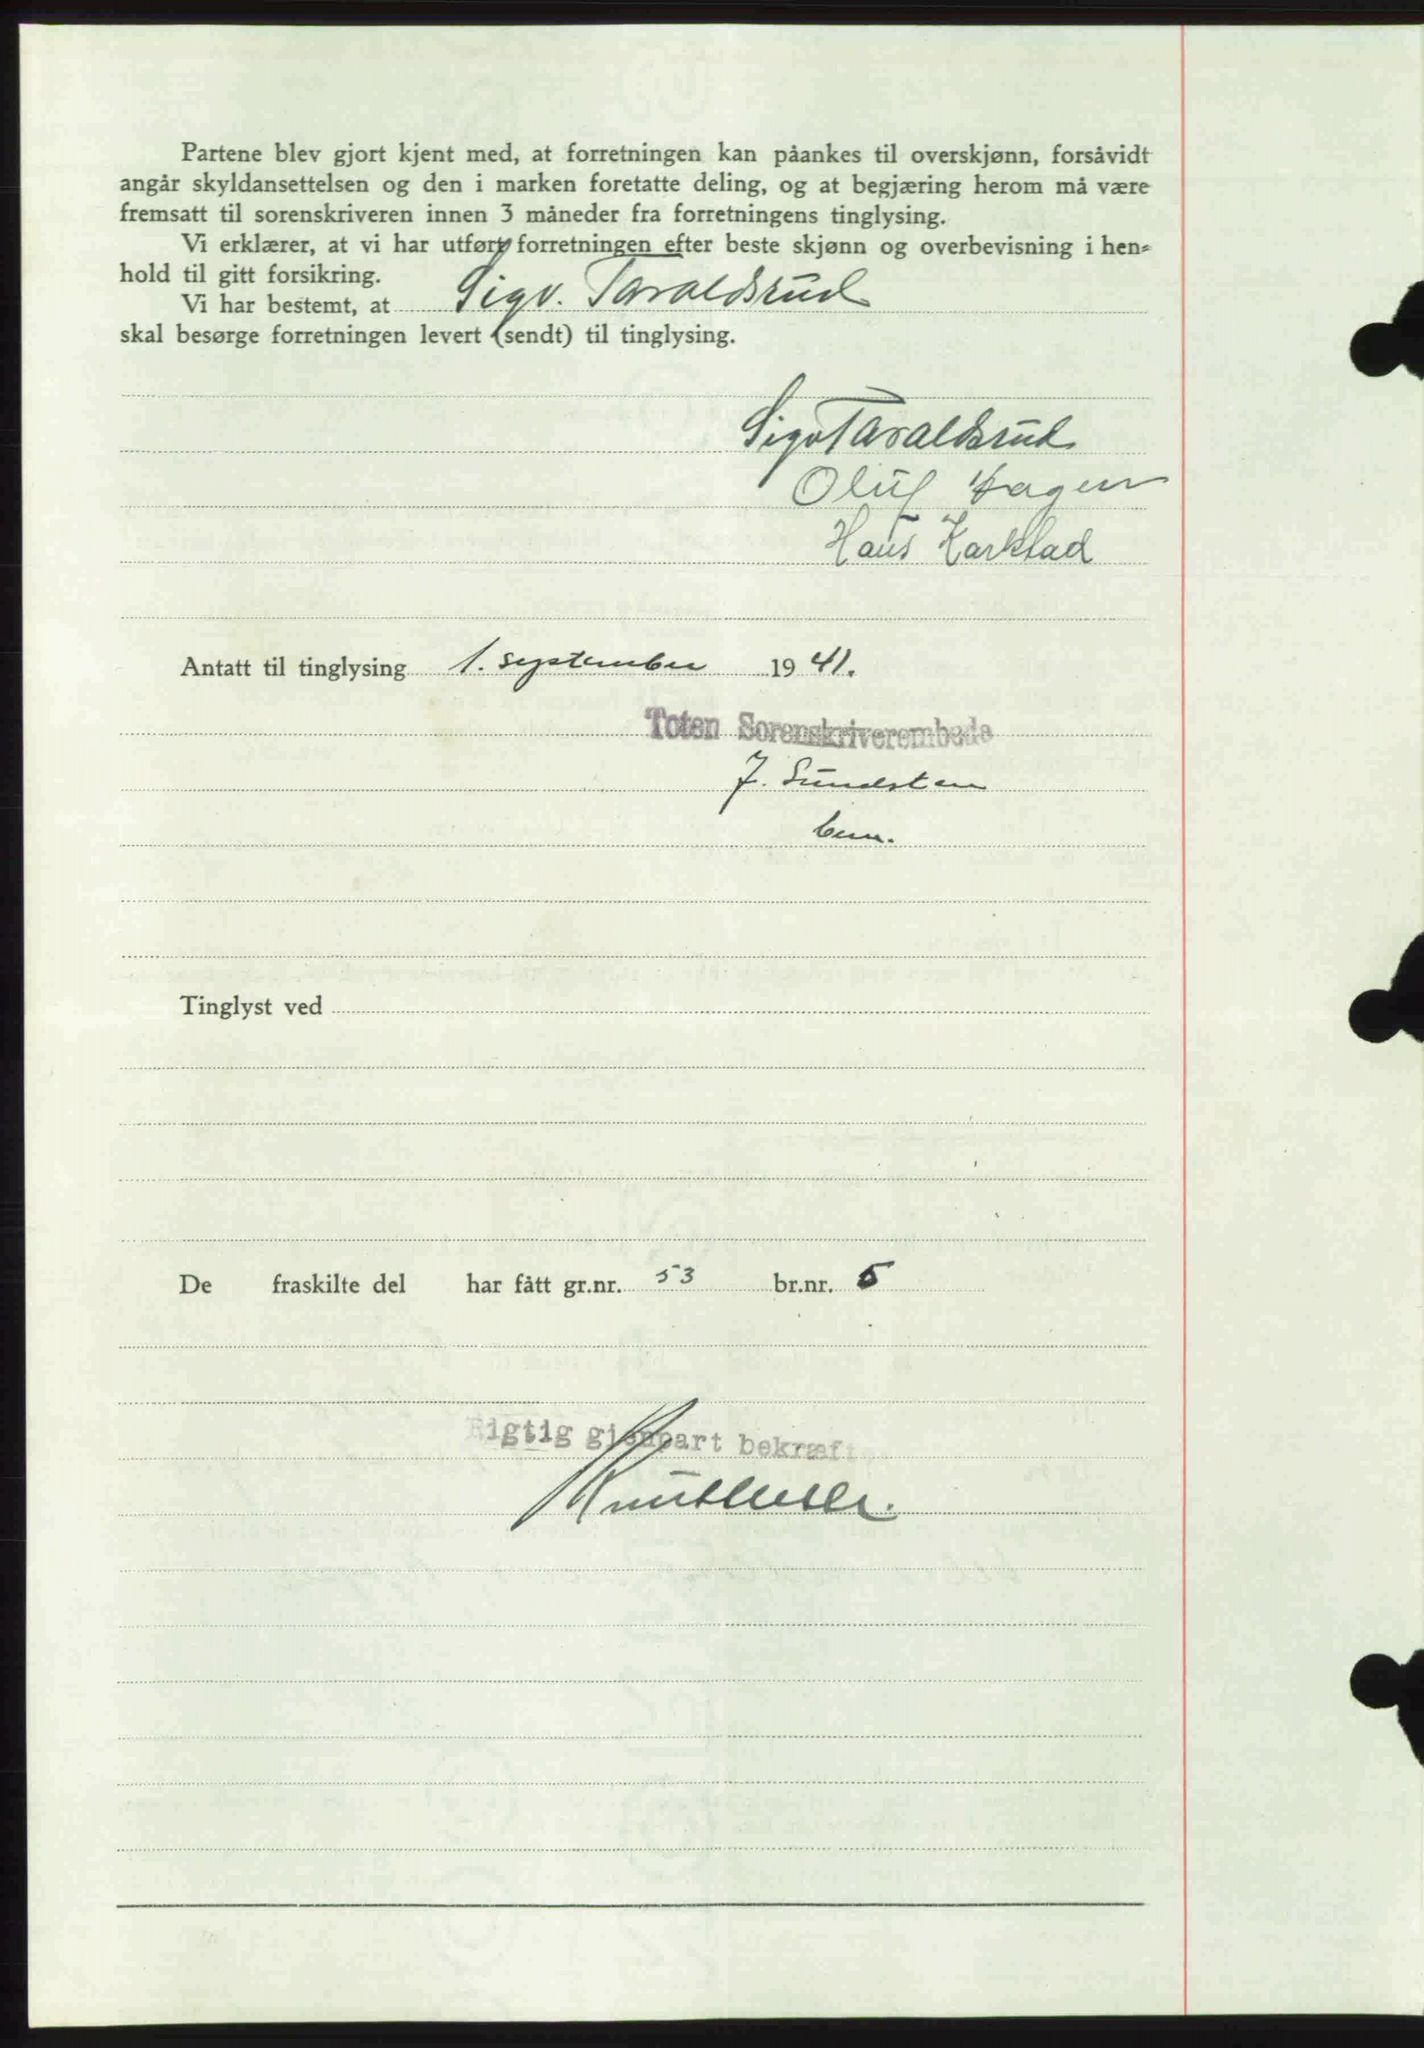 Partene blev gjort kjent med, at forretningen kan påankes til overskjønn, forsåvidt
angår skyldansettelsen og den i marken foretatte deling, og at begjæring herom må være
fremsatt til sorenskriveren innen 3 måneder fra forretningens tinglysing.
Vi erklærer, at vi har utført forretningen efter beste skjønn og overbevisning i hen-
hold til gitt forsikring.
Vi har bestemt, at Sigv. Taraldsrud
skal besørge forretningen levert (sendt) til tinglysing.
Sigv Taraldsrud
Oluf Hagen
Hans Karkstad
Antatt til tinglysing 1. september 1941.
Toten Sorenskriverembede
J. Sundsten
bem.
Tinglyst ved
De fraskilte del har fått gr.nr. 53 br.nr. 5
Rigtig gjenpart bekræft